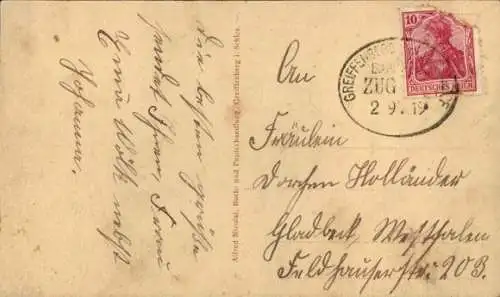 Die besten Grüße
sendet Ihnen, Frau
Erna Wölk nebst
Johanna.
Alfred Nierdal, Buch- und Papierhandlung, Greiffenberg i. Schles.
An
Fräulein
Dorchen Holländer
Gladbeck, Westfalen
Feldhauserstr. 208.
10
DEUTSCHES REICH
GREIFFENBERG
ZUG
2 9. 19